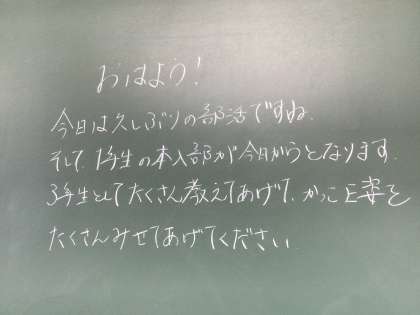 おはよう!
今日は久しぶりの部活ですね.
そして、1年生の本入部が今日からとなります.
3年生としてたくさん教えてあげて、かっこE姿を
たくさんみせてあげてください.